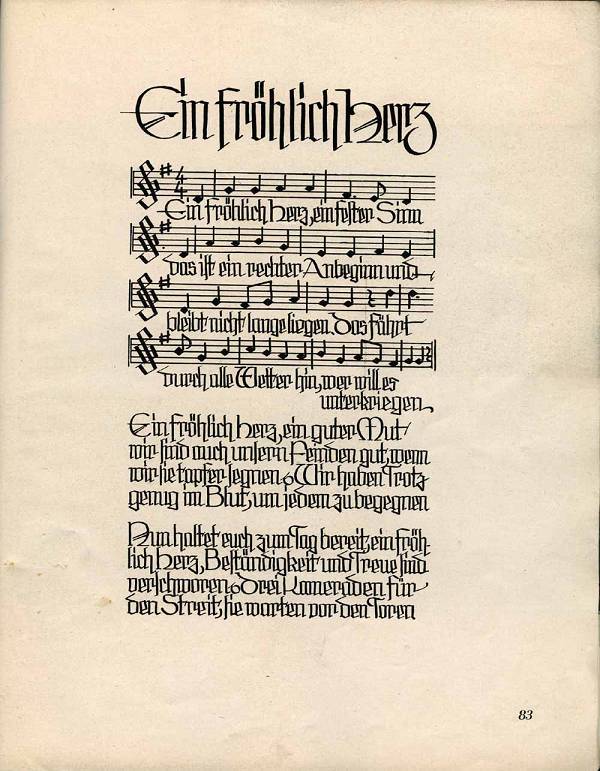 Ein fröhlich Herz
4
4
Ein fröhlich Herz, ein fester Sinn
das ist ein rechter Anbeginn und
bleibt nicht lange liegen. Das führt
durch alle Wetter hin, wer will es
unterkriegen.
Ein fröhlich Herz, ein guter Mut-
wir sind auch unsern Feinden gut, wenn
wir sie tapfer segnen. Wir haben Trotz
genug im Blut, um jedem zu begegnen
Nun haltet euch zum Tag bereit, ein fröh-
lich Herz, Beständigkeit und Treue sind
verschworen. Drei Kameraden für
den Streit, sie warten vor den Toren
83